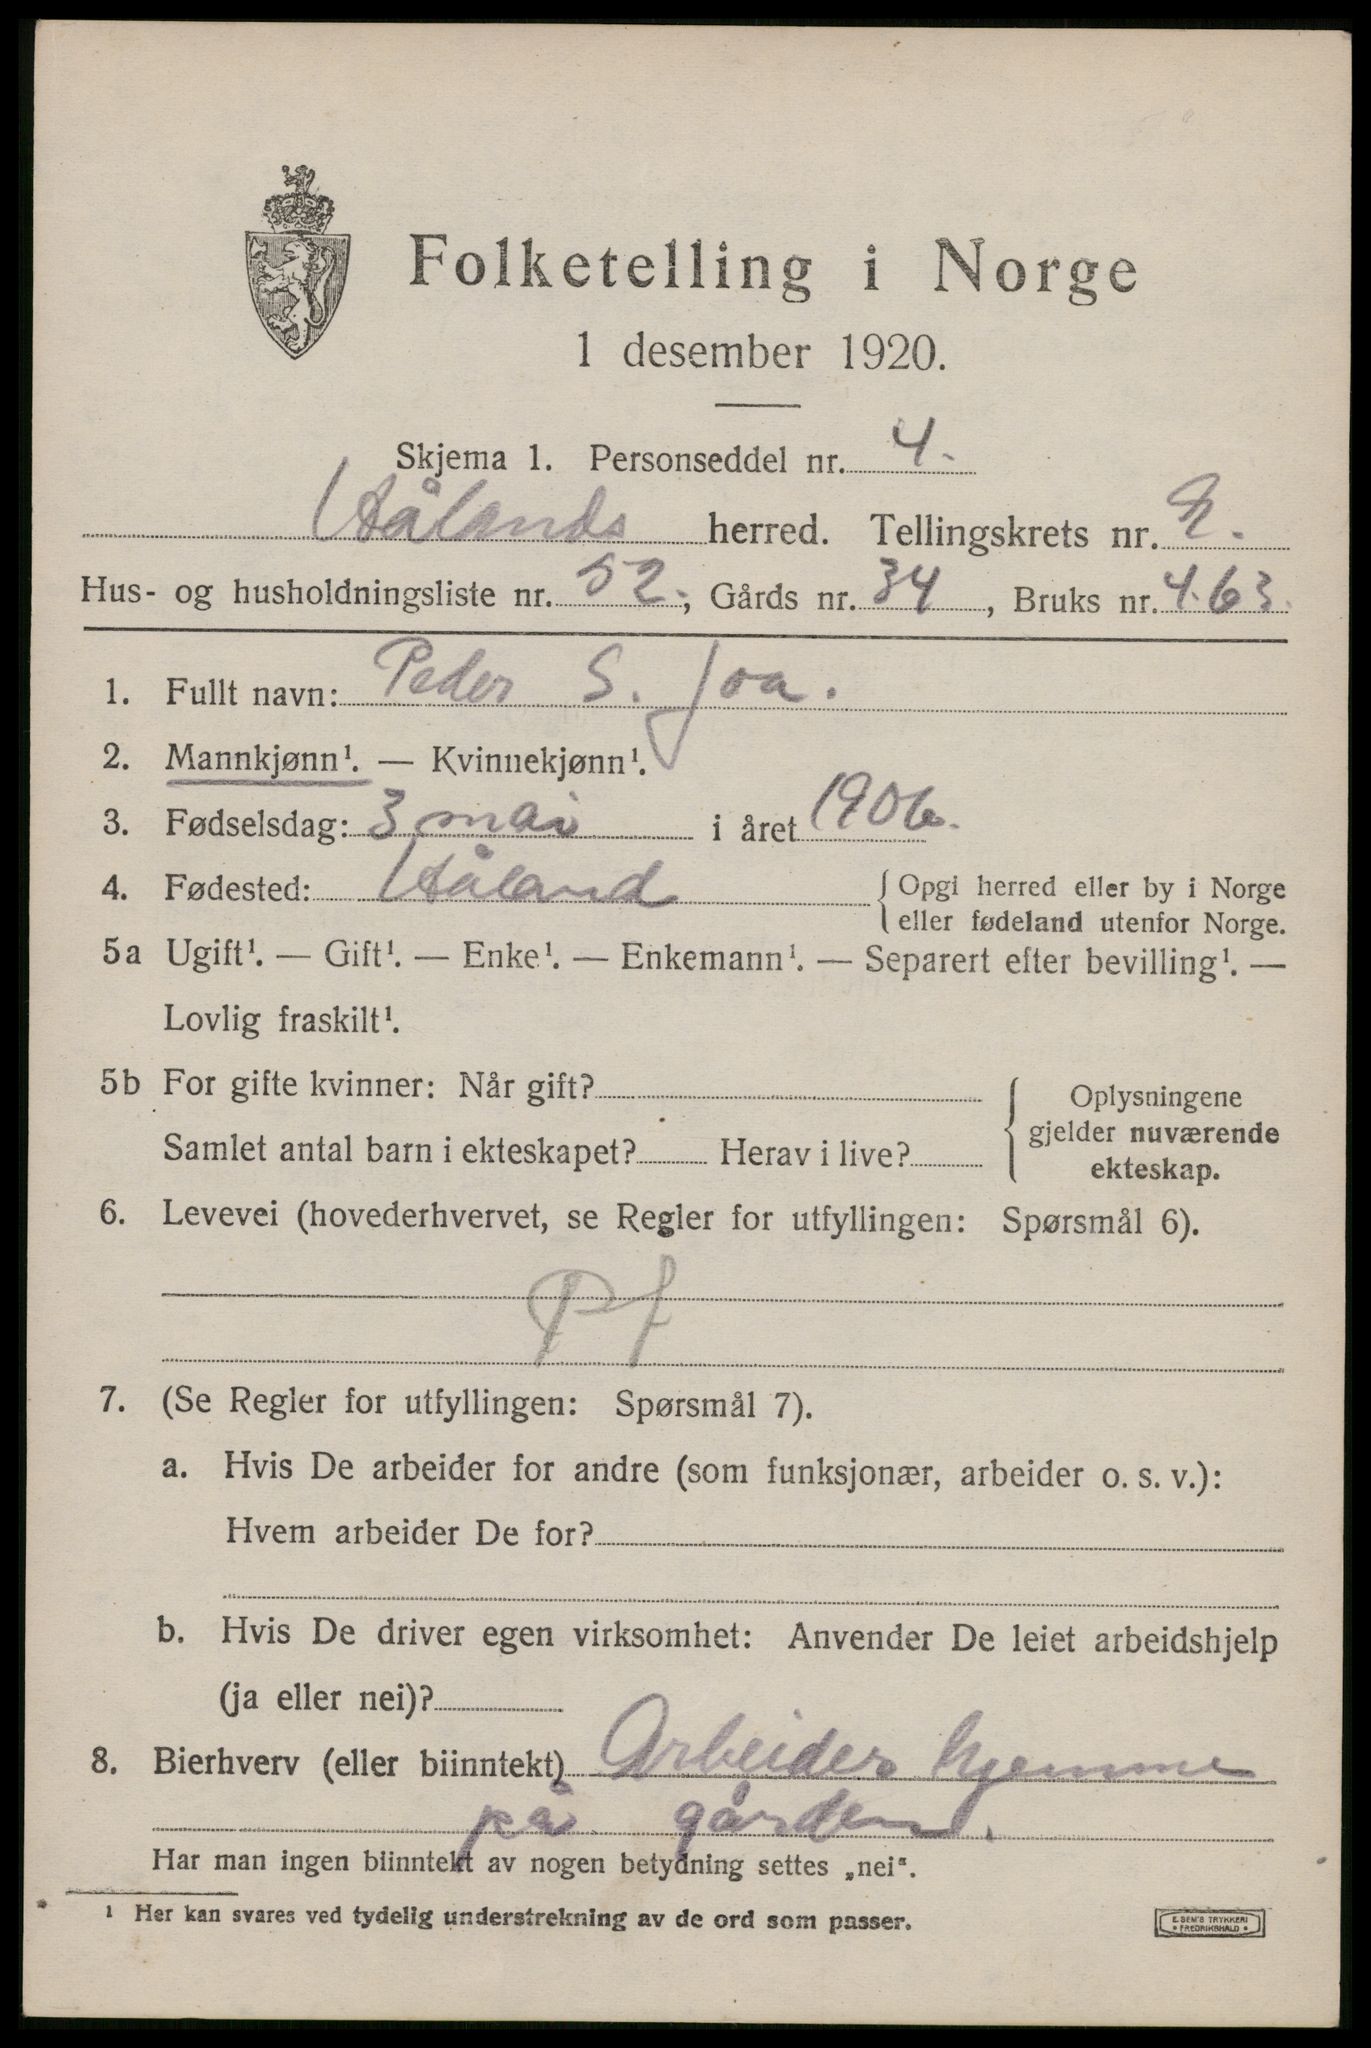 Folketelling i Norge
1 desember 1920.
Skjema 1. Personseddel nr. 4.
Hålands herred. Tellingskrets nr. 2.
Hus- og husholdningsliste nr. 52., Gårds nr. 34, Bruks nr. 4.63.
1. Fullt navn: Peder S. Joa.
2. Mannkjønn¹. — Kvinnekjønn¹.
3. Fødselsdag: 3 mai i året 1906.
4. Fødested: Håland { Opgi herred eller by i Norge
eller fødeland utenfor Norge.
5a Ugift¹. — Gift¹. — Enke¹. — Enkemann¹. — Separert efter bevilling¹. —
Lovlig fraskilt¹.
5b For gifte kvinner: Når gift? { Oplysningene
gjelder nuværende
Samlet antal barn i ekteskapet? Herav i live?
ekteskap.
6. Levevei (hovederhvervet, se Regler for utfyllingen: Spørsmål 6).
Pf
7. (Se Regler for utfyllingen: Spørsmål 7).
a. Hvis De arbeider for andre (som funksjonær, arbeider o. s. v.):
Hvem arbeider De for?
b. Hvis De driver egen virksomhet: Anvender De leiet arbeidshjelp
(ja eller nei)?
8. Bierhverv (eller biinntekt) Arbeider hjemme
på gården.
Har man ingen biinntekt av nogen betydning settes „nei“.
¹ Her kan svares ved tydelig understrekning av de ord som passer.
E. SEM'S TRYKKERI
• FREDRIKSHALD •